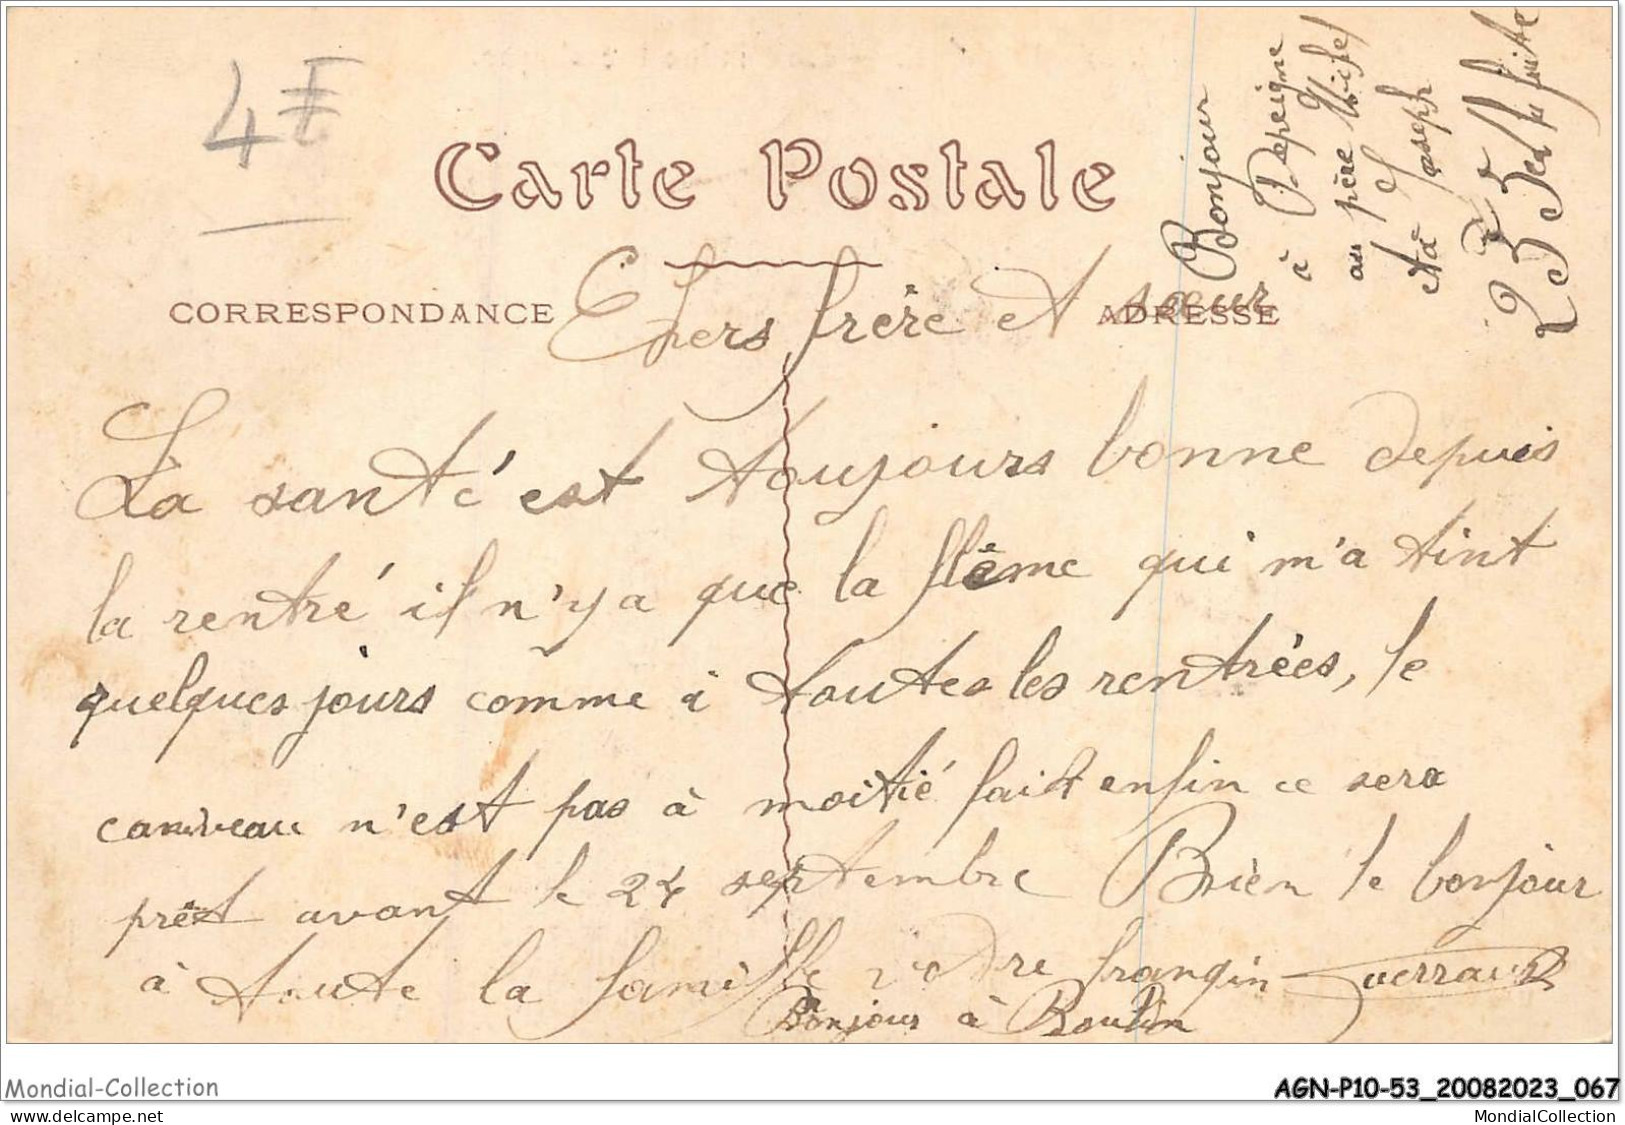 4€
Carte Postale
CORRESPONDANCE
ADRESSE
Chers frère et sœur
La santé est toujours bonne depuis
la rentré il n'y a que la flême qui m'a tint
quelques jours comme à toutes les rentrées, le
caniveau n'est pas à moitié fait enfin ce sera
prêt avant le 24 septembre Bien le bonjour
à toute la famille votre frangin Guerraud
Bonjour à Boutin
Bonjour
à Depeigne
au père
Joseph
235
Mondial-Collection
AGN-P10-53_20082023_067
www.delcampe.net
MondialCollection